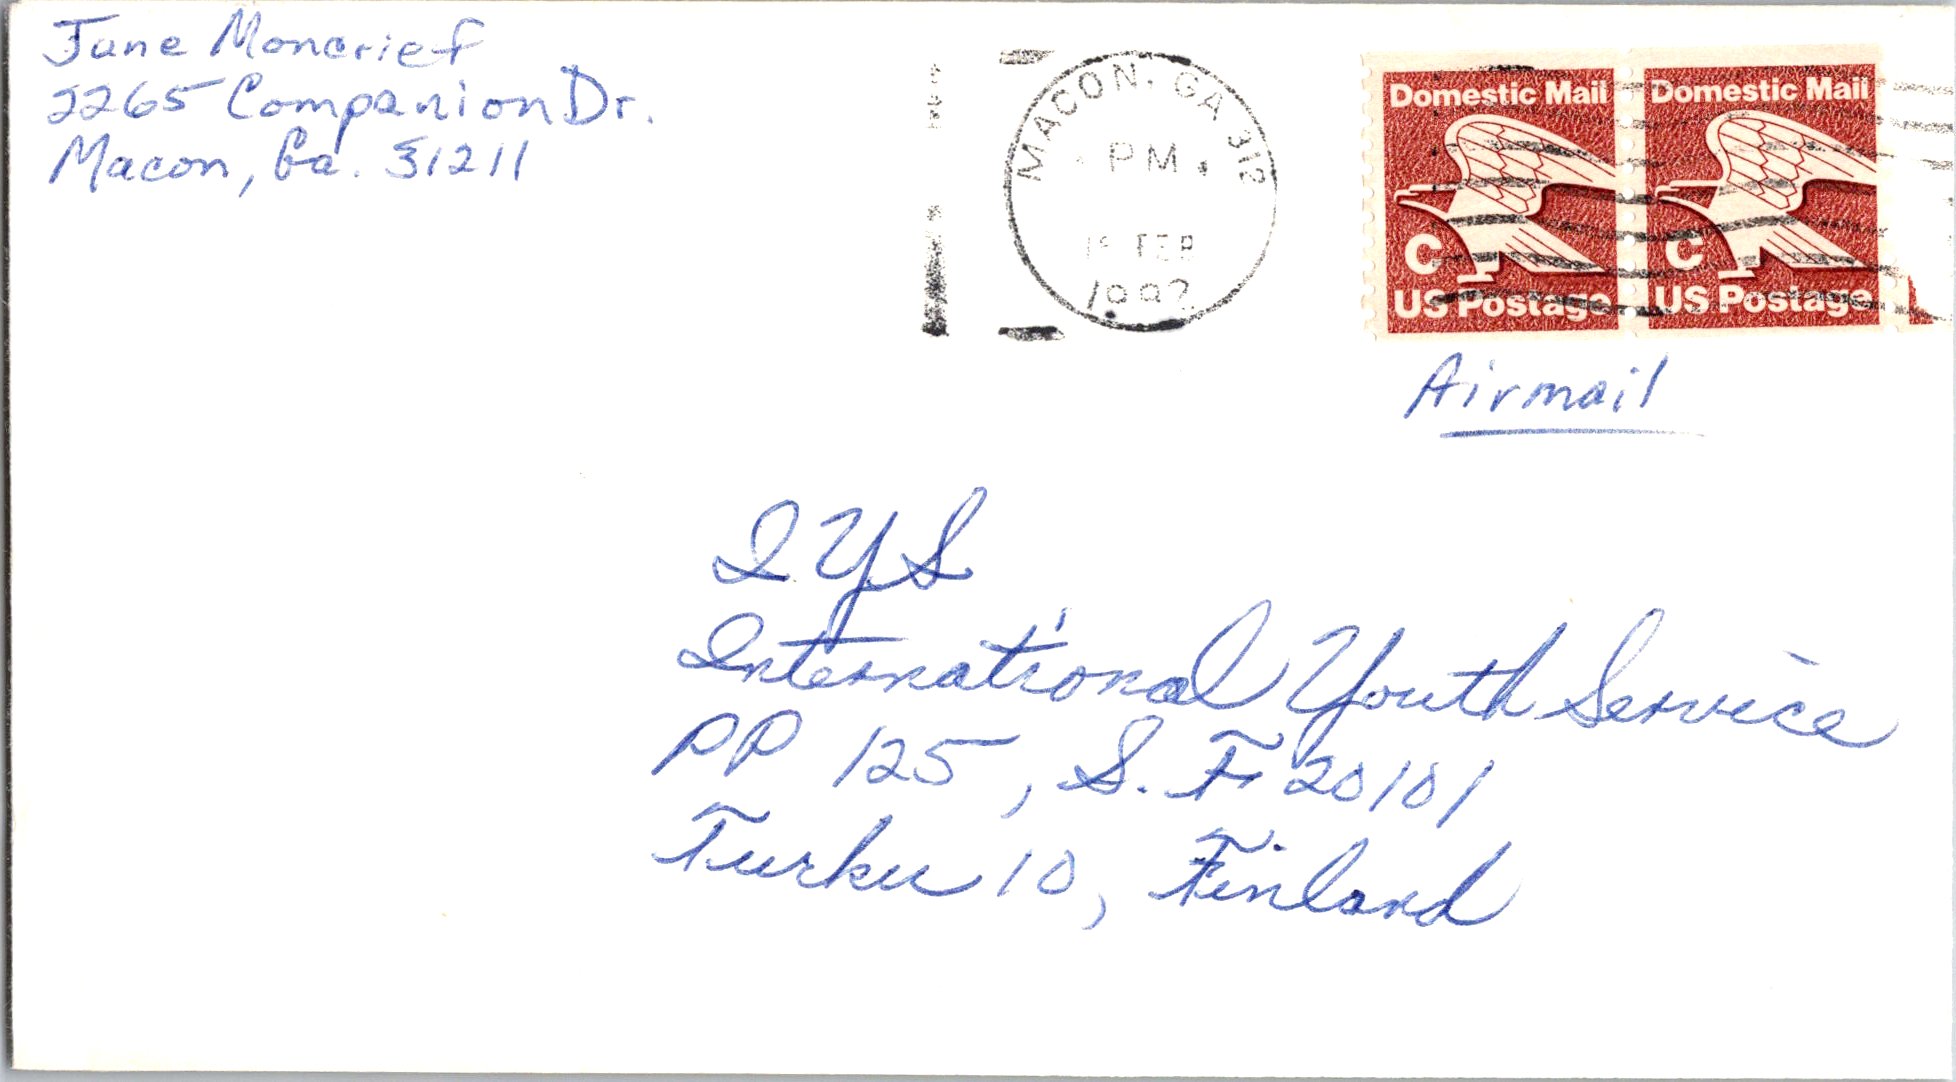 June Moncrief
2265 Companion Dr.
Macon, Ga. 31211
MACON, GA 312
PM
FEB
Domestic Mail
C
US Postage
Domestic Mail
C
US Postage
Airmail
IYS
International Youth Service
PP 125, S.F 20101
Turku 10, Finland